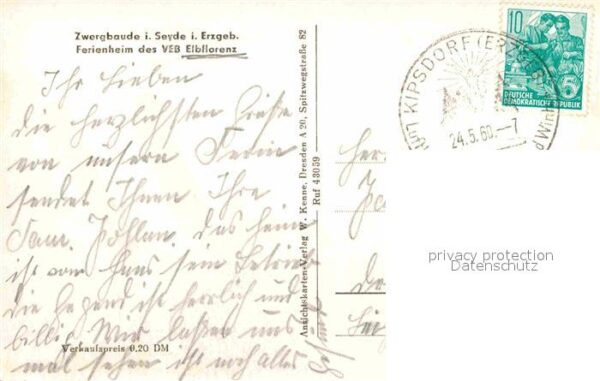 Zwergbaude i. Seyde i. Erzgeb.
Ferienheim des VEB Elbflorenz
Ihr Lieben
die herzlichsten Grüße
von unsern Ferien
sendet Ihnen Ihre
Fam. das heim
ist von Hans sein Betrieb
die Gegend ist herrlich und
billig. Wir laßen uns
mal sehen ist noch alles
gesund
Verkaufspreis 0,20 DM
Ansichtskarten-Verlag W. Kenne, Dresden A 20, Spitzwegstraße 82
Ruf 43059
KIPSDORF (ERZGEB)
24.5.60.-7
10
5
DEUTSCHE
DEMOKRATISCHE REPUBLIK
privacy protection
Datenschutz